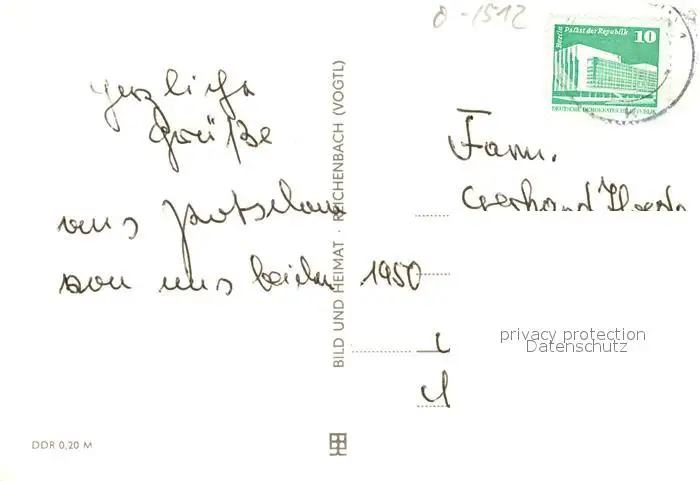 O-1512
Berlin Palast der Republik
10
DEUTSCHE DEMOKRATISCHE REPUBLIK
Herzliche
Grüße
aus Potsdam
von uns beiden 1950
BILD UND HEIMAT · REICHENBACH (VOGTL)
Fam.
privacy protection
Datenschutz
DDR 0,20 M